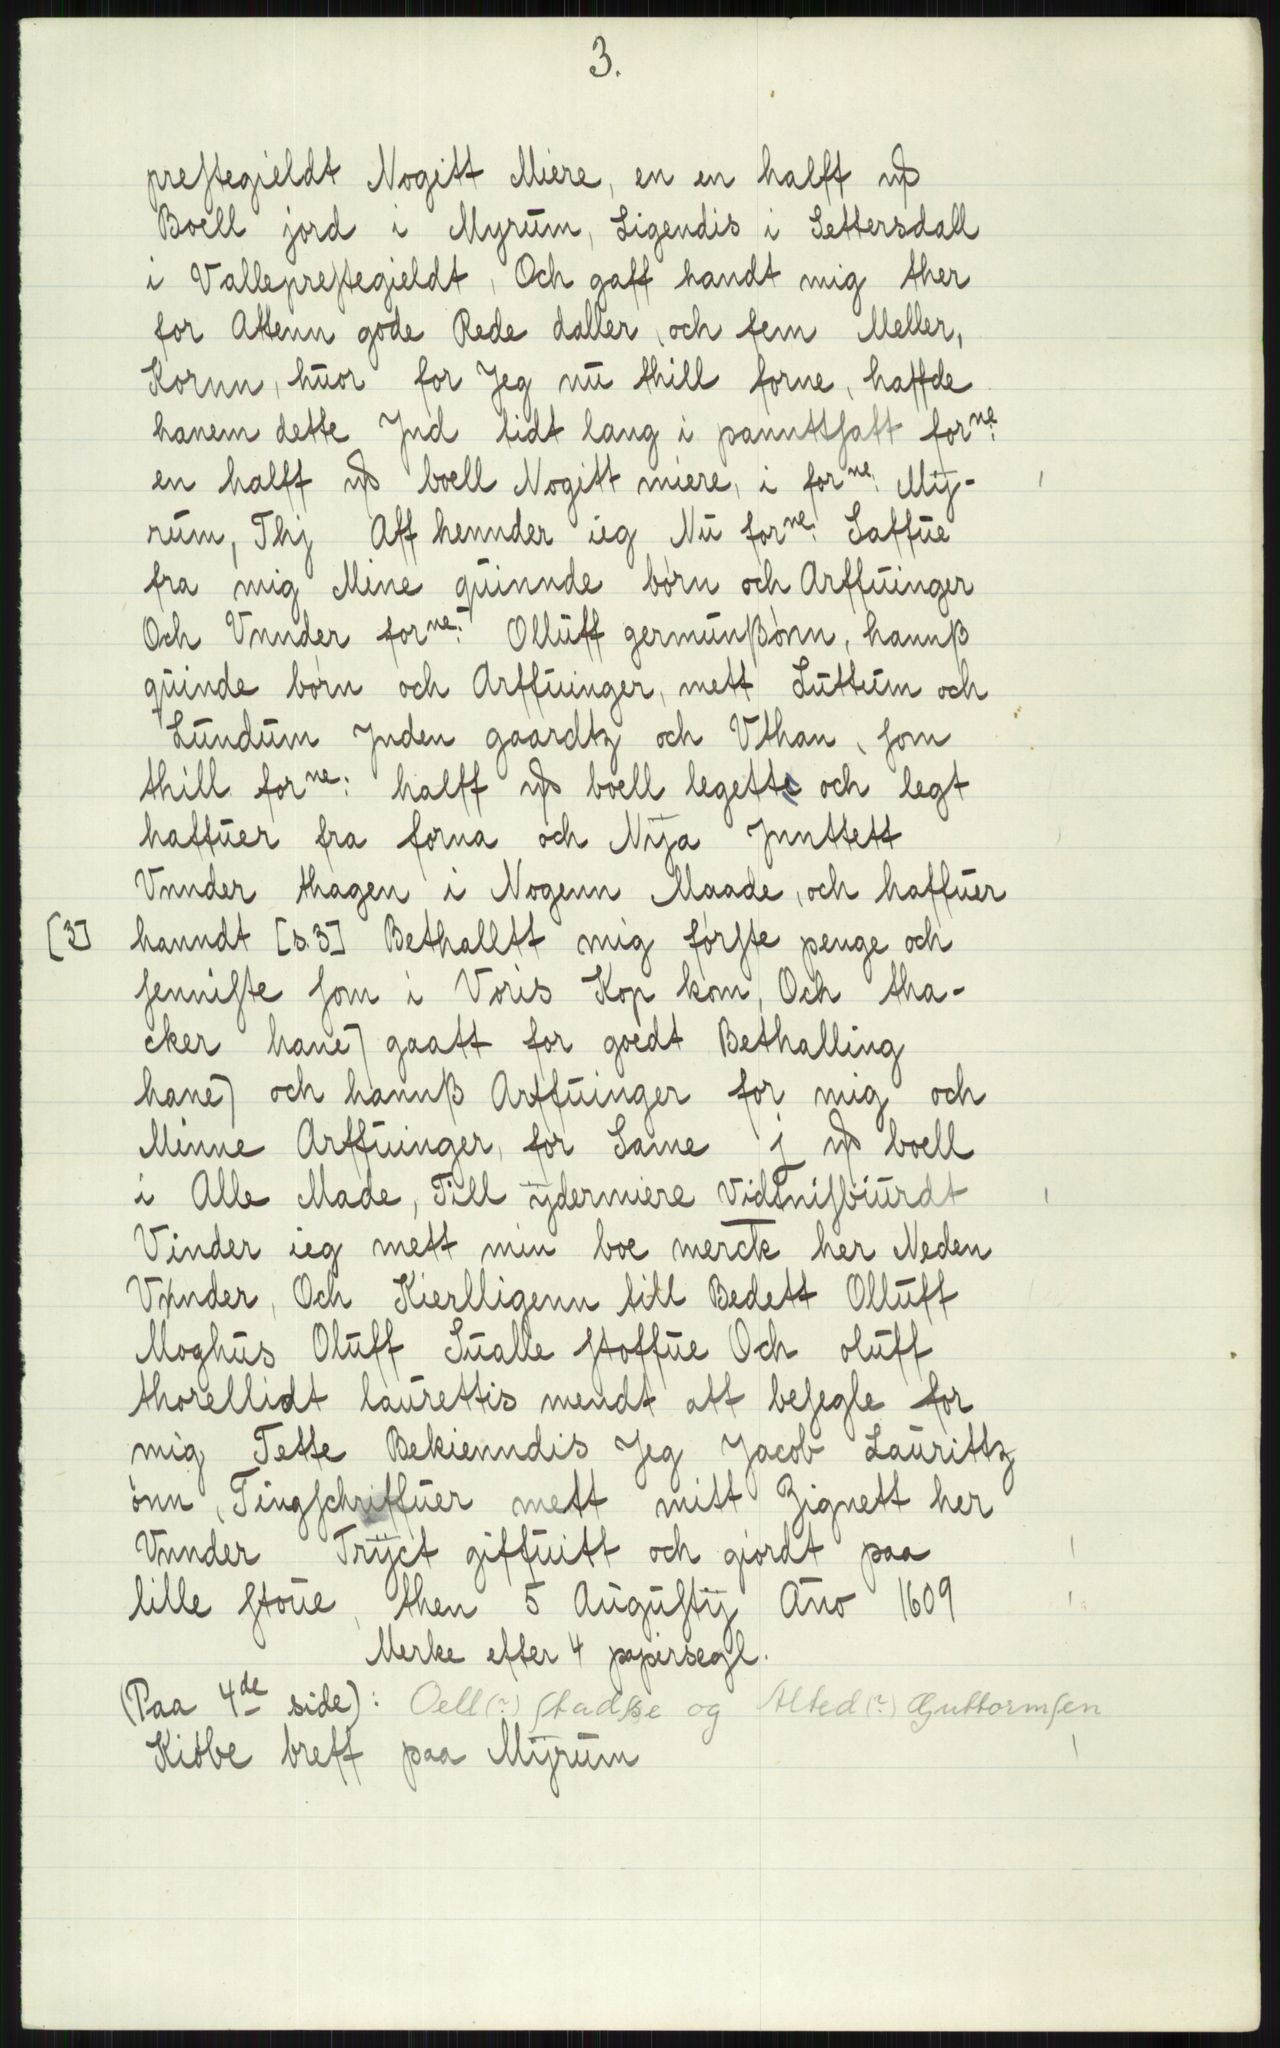 3.
prestegieldt Nogitt Miere, en en halff
Boell jord i Myrum, Ligendis i Settersdall
i Valleprestegieldt, Och gaff handt mig ther
for Attenn gode Rede daller, och fem Meller,
Kornn, huor for Jeg nu thill forne, haffde
hanem dette Jnd tidt lang i panuttsatt forne:
en halff boell Nogitt miere, i forne: Mÿ-
rum, Thj Aff hennder ieg Nu forne: Saffue
fra mig Mine quinnde børn och Arffuinger
Och Vnnder forne: Olluff germunßønn, hannß
quinde børn och Arffuinger, mett Luttum och
Lundum Jnden gaardtz och Vthan, som
thill forne: halff boell legette och legt
haffuer fra forna och Nÿa Jnnttett
Vnnder thagen i Nogenn Maade, och haffuer
[3] hanndt [s.3] Bethalltt mig første penge och
senniste som i Voris Kop kom, Och tha-
cker hane) gaatt for goedt Bethalling
hane) och hannß Arffuinger for mig och
Minne Arffuinger, for Same j boell
i Alle Made, Till ÿdermiere Vidtnisbiurdt
Vinder ieg mett min boe mercke her Neden
Vnnder, Och Kierlligenn till Bedett Olluff
Moghus Oluff Sualle stoffue Och oluff
thorellidt laurettis mendt att besegle for
mig Tette Bekienndis Jeg Jacob Laurittz
ønn, Tingschriffuer mett mitt Zignett her
Vnnder Trÿct giffuitt och giordt paa
lille stoue, then 5 Augustÿ Año 1609
Merke efter 4 papirsegl.
(Paa 4de side): Oell(?) stadße og Alted(?) Guttormsen
Kiøbe breff paa Mÿrum